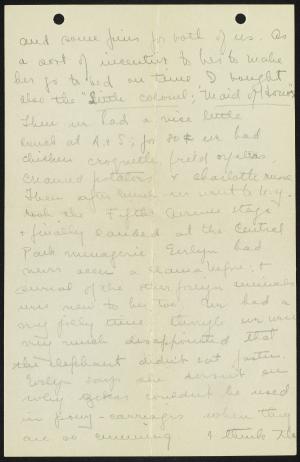 and some pins for both of us. As
a sort of incentive to her to make
her go to bed on time I bought
also the "Little Colonel: Maid of Honor"
Then we had a nice little
lunch at A + S; for 80¢ we had
chicken croquette, fried oysters,
creamed potatoes + charlotte russe
Then after lunch we went to
the Fifth Avenue stage
+ finally landed at the Central
Park menagerie. Evelyn had
never seen a llama before, +
several of the other foreign animals
were new to her too. We had a
very jolly time though we were
very much disappointed that
the elephant didn't eat faster.
Evelyn says she doesn't see
why zebras couldn't be used
in pony-carriages when they
are so cunning. I think